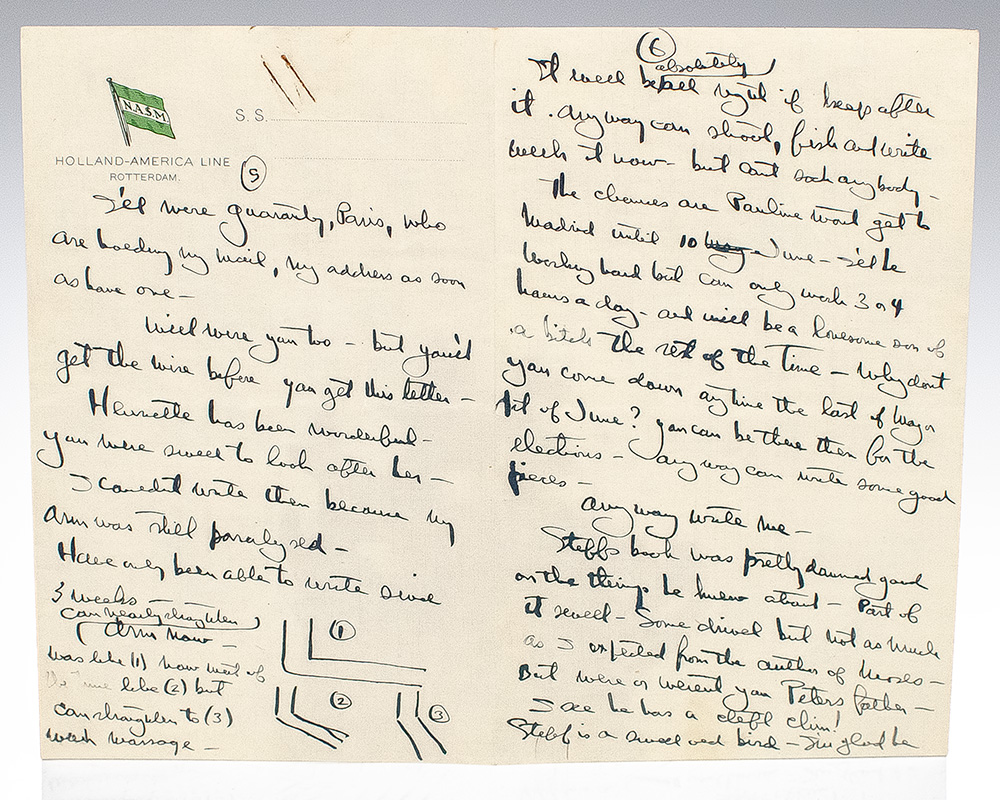 N.A.S.M
S.S.
HOLLAND-AMERICA LINE
ROTTERDAM.
5
I'll wire guaranty, Paris, who
are holding my mail, my address as soon
as have one —
Will wire you too — but you'll
get the wire before you get this letter —
Henriette has been wonderful —
you were sweet to look after her —
I couldn't write then because my
arm was still paralysed —
Have only been able to write since
3 weeks
can nearly straighten
arm now —
was like (1) now most of
the time like (2) but
can straighten to (3)
with massage —
(1)
(2)
(3)
6
absolutely
It will be all right if keep after
it. Anyway can shoot, fish and write
with it now — but cant sock anybody —
The chances are Pauline wont get to
Madrid until 10 May June — I'll be
working hard but can only work 3 or 4
hours a day — and will be a lonesome son of
a bitch the rest of the time — Why dont
you come down anytime the last of May or
1st of June? You can be there then for the
elections — anyway can write some good
pieces —
Anyway write me —
Steffs book was pretty damned good
on the things he knew about — Part of
it swell — Some drivel but not as much
as I expected from the author of Moses —
But were or werent you Peters father —
I see he has a cleft chin!
Steff is a swell old bird — I'm glad he